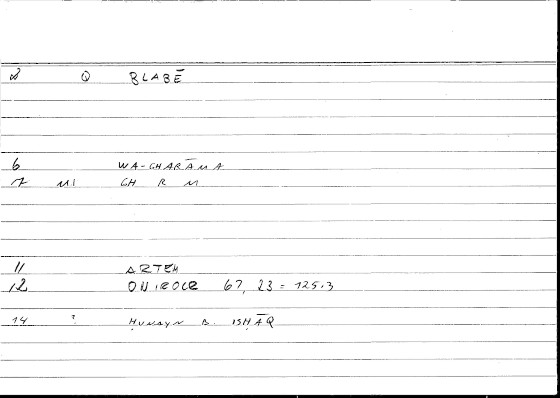 8 Q BLABĒ
6 WA-GHARĀMA
7 MI GH R M
11 ARTEM
12 ONIROCR 67, 23 = 125.3
14 ? ḤUNAYN B. ISḤĀQ